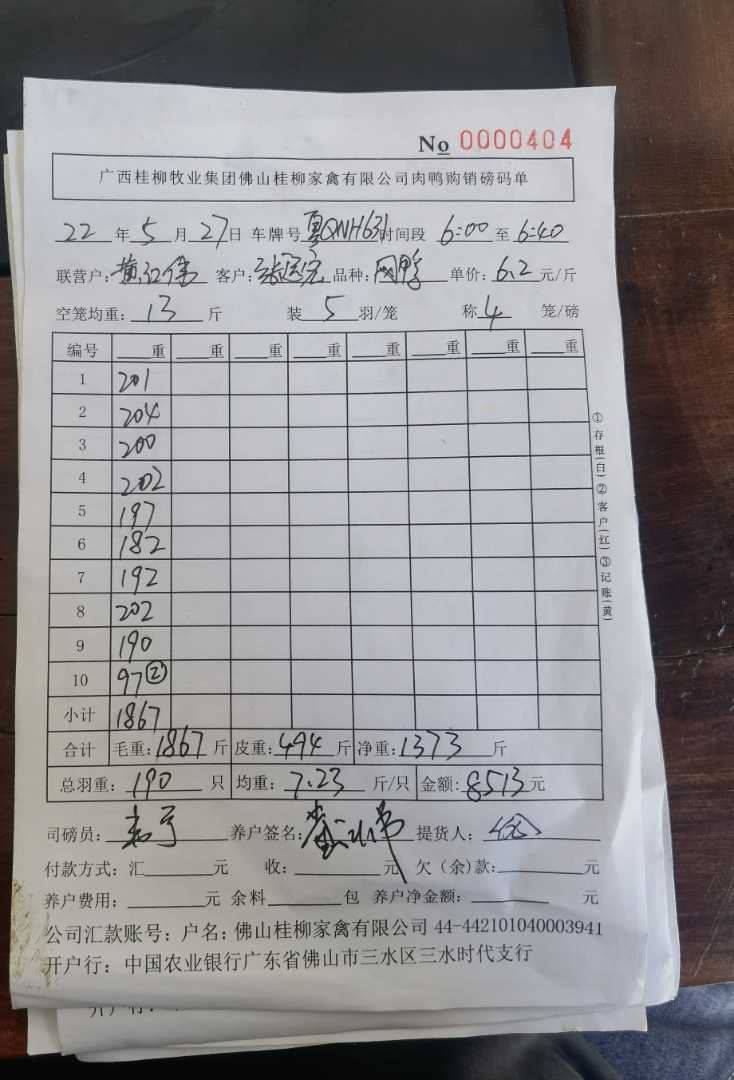 No 0000404
广西桂柳牧业集团佛山桂柳家禽有限公司肉鸭购销磅码单
22年5月27日 车牌号粤QNH631时间段 6:00至6:40
联营户:黄江伟 客户: 品种: 单价:6.2元/斤
空笼均重:13斤 装5羽/笼 称4笼/磅
编号 重 重 重 重 重 重 重 重
1 201
2 204
3 200
4 202
5 197
6 182
7 192
8 202
9 190
10 97②
小计 1867
合计 毛重:1867斤 皮重:494斤 净重:1373斤
总羽重:190只 均重:7.23斤/只 金额:8513元
司磅员: 养户签名: 提货人:
付款方式:汇 元 收: 元 欠(余)款: 元
养户费用: 元 余料 包 养户净金额: 元
公司汇款账号:户名:佛山桂柳家禽有限公司 44-442101040003941
开户行:中国农业银行广东省佛山市三水区三水时代支行
①存根(白)②客户(红)③记账(黄)